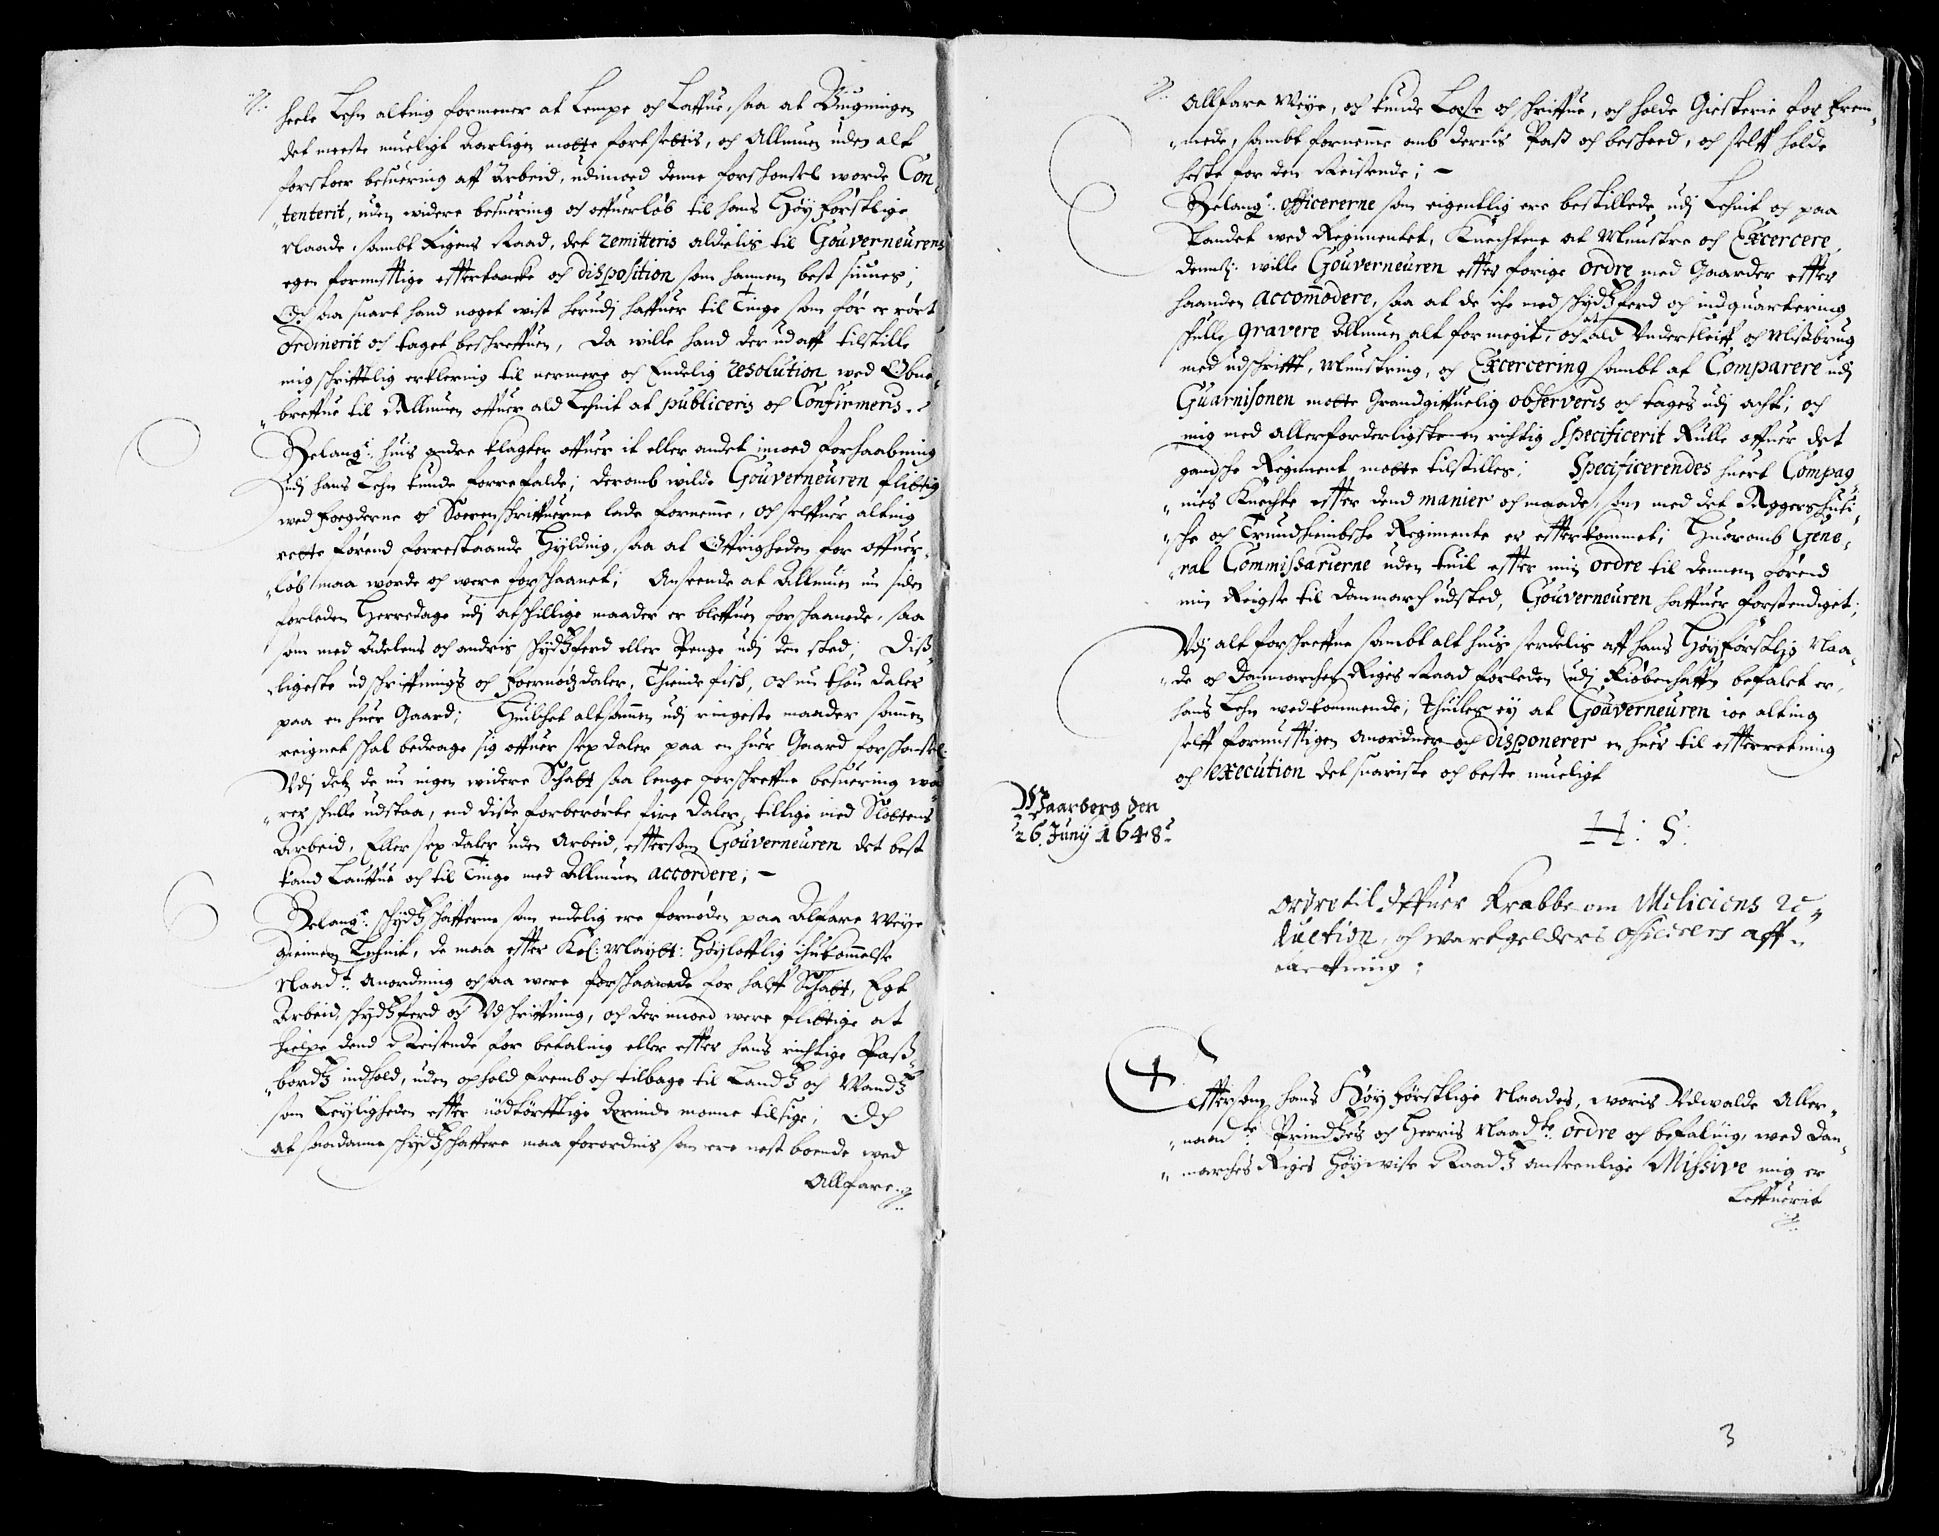 heele Lehn alting formener at Lempe och Laffue, saa at Bugningen
det meste mueligt Aarligen motte fortsettis, och Allmuen uden alt
forstoer besuering aff Arbeid, udimoed denne forschonsel worde Con-
tenterit, uden widere besuering och offuerløb til hans Høy Førstlige
Naade, sambt Rigens Raad, det remitteris aldelis til Gouverneurens
egen fornufftige effterkancke och disposition som hannem best siunes;
Och saa snart hand noget wist herudj haffuer til Tinge som før er rørt
Ordinerit och taget beschreffuen, da wille hand der ud aff tilstille
mig schrifftlig erklering til nermere och Endelig resolution wed Obne-
breffue til Allmuen offuer ald Lehnit at publiceris och Confirmeris.
Belang: huis andre klagter offuer it eller andet imoed forhaabning
udj hans Lehn kunde forrefalde; deromb wilde Gouverneuren flittig
wed Foegderne og Sorenschriffuerne lade fornemme, och selffuer alting
rette førend forrestaande Hylding, saa at Øffrigheden for offuer-
løb maa worde och were forschaanet; Anseende at Allmuen nu siden
forleden Herredage udj atschillige maader er bleffuen forschaanede, saa
som med Adelens och andris schydtzferd eller Penge udj den sted; Diß-
ligeste udschriffnings och Foermodtzdaler, Thiende fisch, och nu thou daler
paa en huer Gaard; Huilchet altsammen udj ringeste maader sammen
reignet schal bedrage sig offuer sex daler paa en huer Gaard forschonsel
Udj det de nu ingen widere Schatt saa lenge forschreffne besuering wa-
rer schulle udstaa, end disse forberørte fire daler, tillige med Slottens
Arbeid, Eller sex daler uden Arbeid, effttersom Gouverneuren det best
kand Lauffue och til Tinge med Allmuen accordere; -
Belang: schydtzschafferne som endelig ere fornøden paa Alfare Weye
gienem Lehnit, de maa effter Kol: Maytt: Høyloffilig ihukommelse
Naad: Anordning ochsaa were forschaanede for halff Schatt, Egt
Arbeid, schydtzferd och Udschriffning, och derimoed were flittige at
hielpe dend Reisende for betaling eller effter hans richtige Paß-
bordtz indhold, uden ophold fremb och tilbage til Landtz och Wandtz
som Leyligheden effter nødtørfftige Ærinde monne tilsige; Och
at saadanne schydtzschaffere maa forordnis som ere nest boende wed
Allfare
Allfare Weye, och kunde Læse och schriffue, och holde Giesterie for Frem-
mede, sambt fornemme omb derris Paß och bescheed, och selff holde
heste for den Reisende; -
Belang: officererne som eigentlig ere bestillede udj Lehnit och paa
Landet wed Regimentet, Knechtene at Munstre och Excercere,
dennem wille Gouverneuren effter forige ordre med Gaarder effter
haanden accommodere, saa at de iche med schydtzferd och indquartering
schulle gravere Allmuen alt formegit, och at ald Underschleiff och Mißbrug
med udschrifft, Munstring, och Excercering sambt at Comparere udj
Guarnisonen motte Grandgiffuelig observeris och tages udj acht; och
mig med allerforderligste en richtig Specificerit Rulle offuer det
gandsche Regiment motte tilstilles; Specificerendes huert Compag-
nies Knechte effter dend manier och maade, som med det Aggershusi-
sche och Trundhiembsche Regimente er effterkommet; Huoromb Gene-
ral Commissarierne uden tuil effter min ordre til dennem førend
min Reigse til Danmarch udsted, Gouverneuren haffuer forstendiget;
Udj alt forschreffne sambt alt huis serdelis aff hans Høyførstlig Naa-
de og Danmarches Riges Raad forleden udj Kiøbenhaffn befalet er,
hans Lehn wedkommende; Thuiles ey at Gouverneuren ioe alting
selff fornufftigen Anordner och disponerer en huer til efterretning
och execution det snariste och beste mueligt
Waarberg den
26. Junij 1648.
H: S:
Ordre til Iffuer Krabbe om Miliciens re-
duction, och wartgelders officiers aff-
tackning;
Efftersom hans Høy Førstlige Naades, woris Udwalde Aller-
naadte. Prindtzes och Herris Naadte: ordre och befaling, wed Dan-
marches Riges Høywise Raadtz ansteenlige Missive mig er
Leffuerit
3